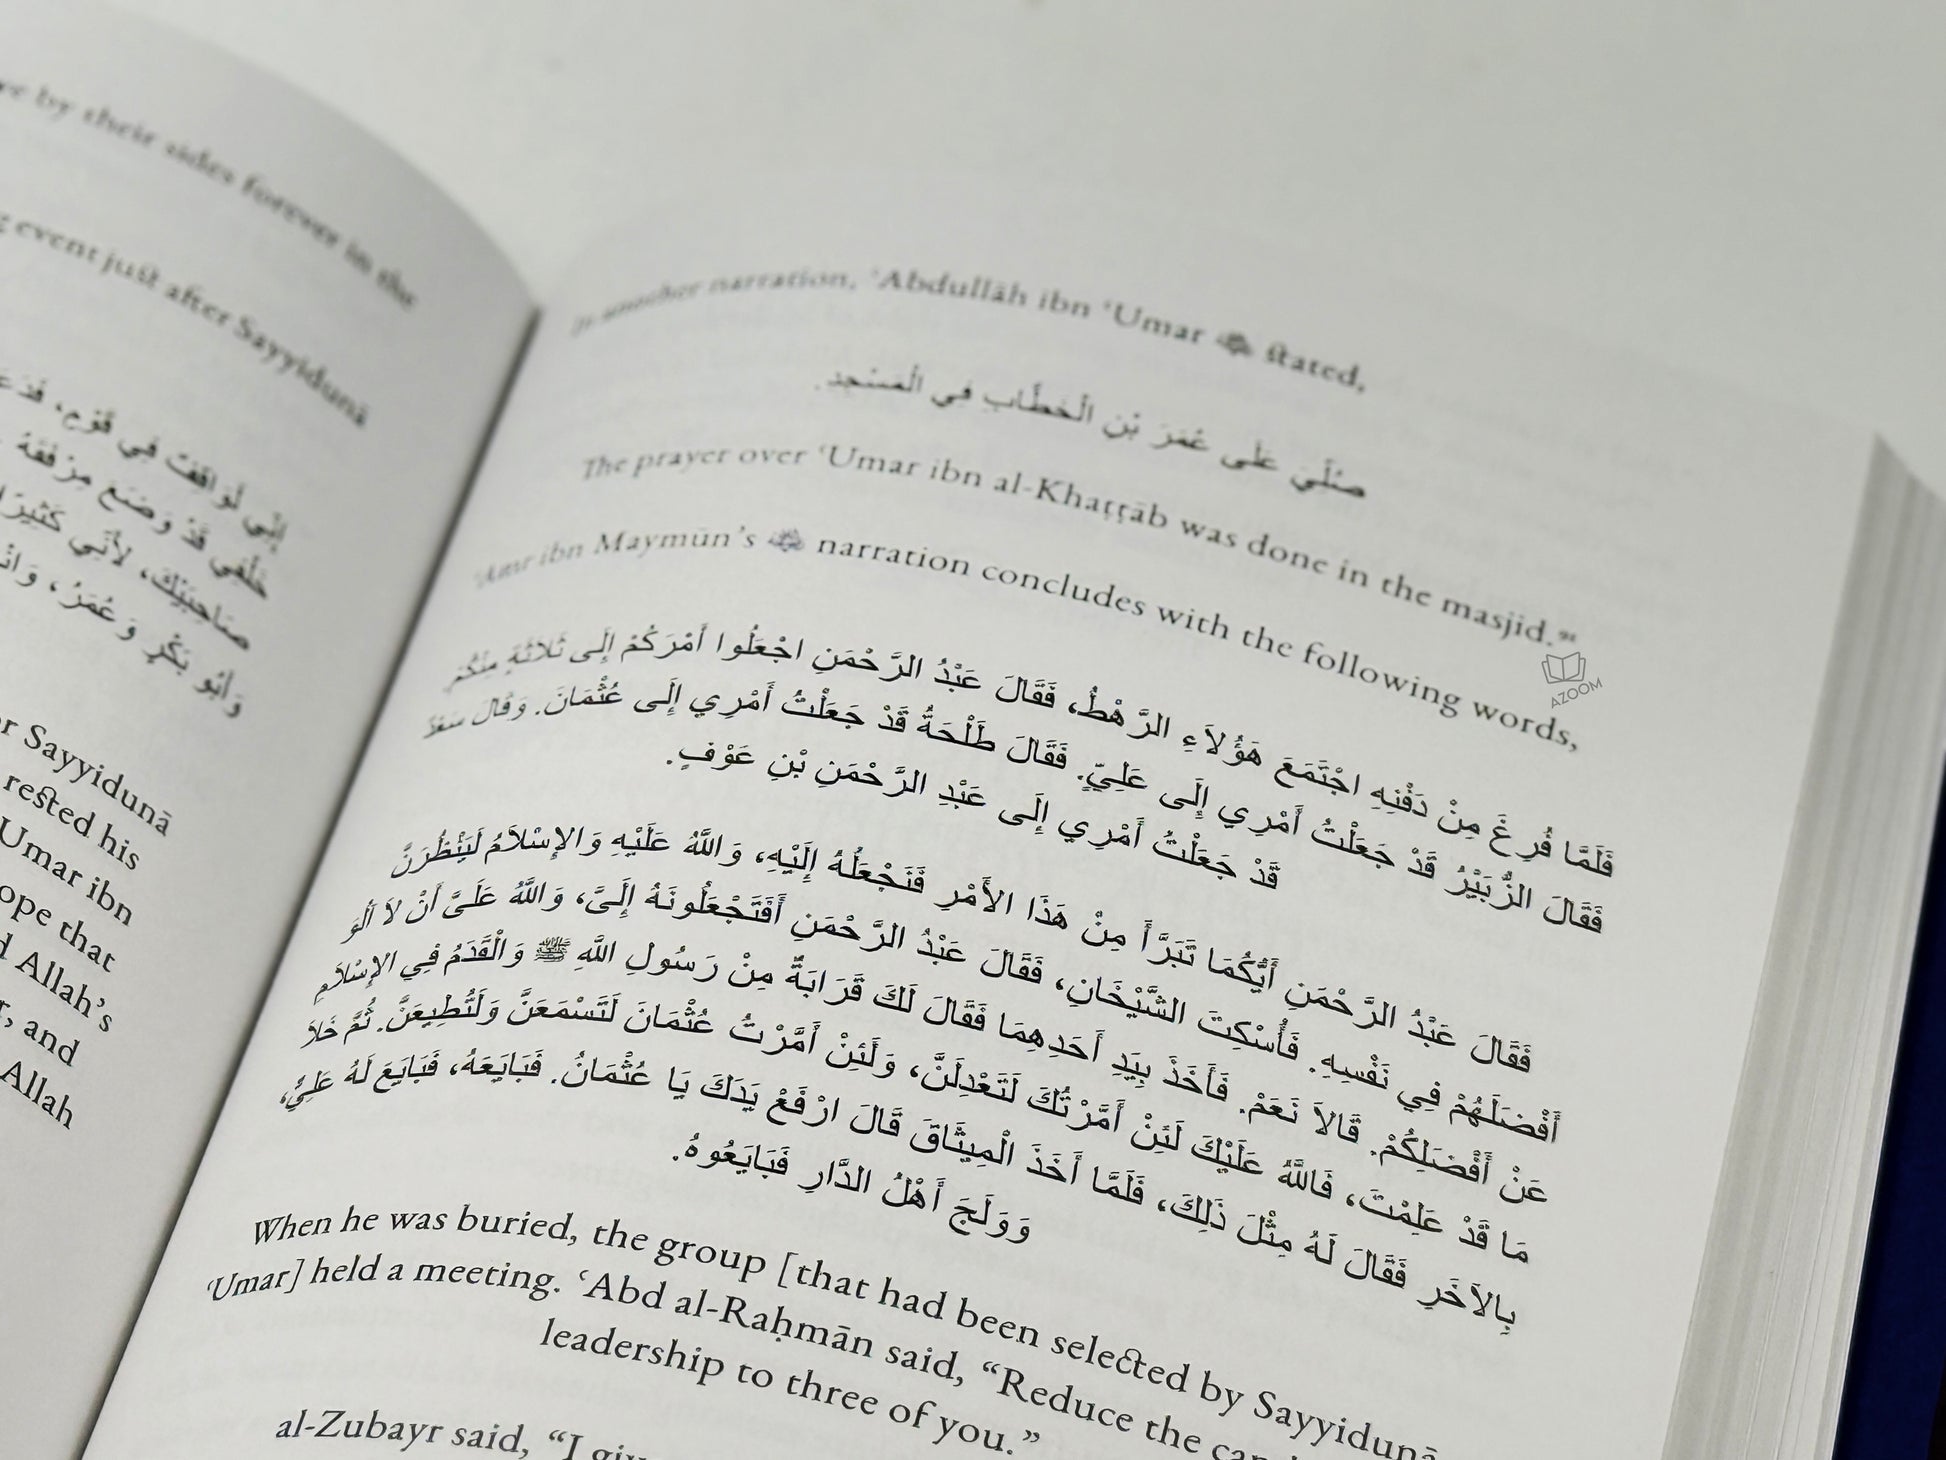 ve by their sides forever in the
g event just after Sayyidunā
إِنِّي لَوَاقِفٌ فِي قَوْمٍ، فَدَعَ
خَلْفِي قَدْ وَضَعَ مِرْفَقَهُ
صَاحِبَيْكَ، لأَنِّي كَثِيرًا
وَأَبُو بَكْرٍ وَعُمَرُ، وَانْ
r Sayyidunā
rested his
Umar ibn
ope that
d Allah’s
r, and
Allah
In another narration, ‘Abdullāh ibn ‘Umar stated,
صُلِّيَ عَلَى عُمَرَ بْنِ الْخَطَّابِ فِي الْمَسْجِدِ.
The prayer over ‘Umar ibn al-Khaṭṭāb was done in the masjid.
‘Amr ibn Maymūn’s narration concludes with the following words,
فَلَمَّا فُرِغَ مِنْ دَفْنِهِ اجْتَمَعَ هَؤُلاَءِ الرَّهْطُ، فَقَالَ عَبْدُ الرَّحْمَنِ اجْعَلُوا أَمْرَكُمْ إِلَى ثَلاَثَةٍ مِنْكُمْ
فَقَالَ الزُّبَيْرُ قَدْ جَعَلْتُ أَمْرِي إِلَى عَلِيٍّ. فَقَالَ طَلْحَةُ قَدْ جَعَلْتُ أَمْرِي إِلَى عُثْمَانَ. وَقَالَ سَعْدٌ
قَدْ جَعَلْتُ أَمْرِي إِلَى عَبْدِ الرَّحْمَنِ بْنِ عَوْفٍ.
فَقَالَ عَبْدُ الرَّحْمَنِ أَيُّكُمَا تَبَرَّأَ مِنْ هَذَا الأَمْرِ فَنَجْعَلُهُ إِلَيْهِ، وَاللَّهُ عَلَيْهِ وَالإِسْلاَمُ لَيَنْظُرَنَّ
أَفْضَلَهُمْ فِي نَفْسِهِ. فَأُسْكِتَ الشَّيْخَانِ، فَقَالَ عَبْدُ الرَّحْمَنِ أَفَتَجْعَلُونَهُ إِلَىَّ، وَاللَّهُ عَلَىَّ أَنْ لاَ آلُوَ
عَنْ أَفْضَلِكُمْ. قَالاَ نَعَمْ. فَأَخَذَ بِيَدِ أَحَدِهِمَا فَقَالَ لَكَ قَرَابَةٌ مِنْ رَسُولِ اللَّهِ ﷺ وَالْقَدَمُ فِي الإِسْلاَمِ
مَا قَدْ عَلِمْتَ، فَاللَّهُ عَلَيْكَ لَئِنْ أَمَّرْتُكَ لَتَعْدِلَنَّ، وَلَئِنْ أَمَّرْتُ عُثْمَانَ لَتَسْمَعَنَّ وَلَتُطِيعَنَّ. ثُمَّ خَلاَ
بِالآخَرِ فَقَالَ لَهُ مِثْلَ ذَلِكَ، فَلَمَّا أَخَذَ الْمِيثَاقَ قَالَ ارْفَعْ يَدَكَ يَا عُثْمَانُ. فَبَايَعَهُ، فَبَايَعَ لَهُ عَلِيٌّ،
وَوَلَجَ أَهْلُ الدَّارِ فَبَايَعُوهُ.
When he was buried, the group [that had been selected by Sayyidunā
‘Umar] held a meeting. ‘Abd al-Raḥmān said, “Reduce the
leadership to three of you.”
al-Zubayr said, “I giv
AZOOM